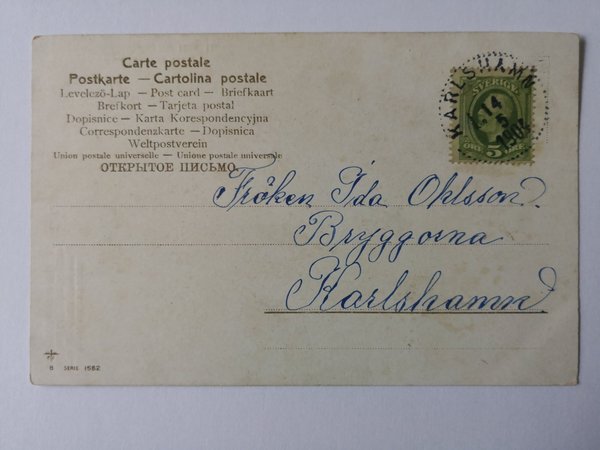 Carte postale
Postkarte — Cartolina postale
Levelező-Lap — Post card — Briefkaart
Brefkort — Tarjeta postal
Dopisnice — Karta Korespondencyjna
Correspondenzkarte — Dopisnica
Weltpostverein
Union postale universelle — Unione postale universale
ОТКРЫТОЕ ПИСЬМО
KARLSHAMN
14
5
SVERIGE
5 ÖRE
Fröken Ida Ohlsson.
Bryggorna
Karlshamn
8 SERIE 1562